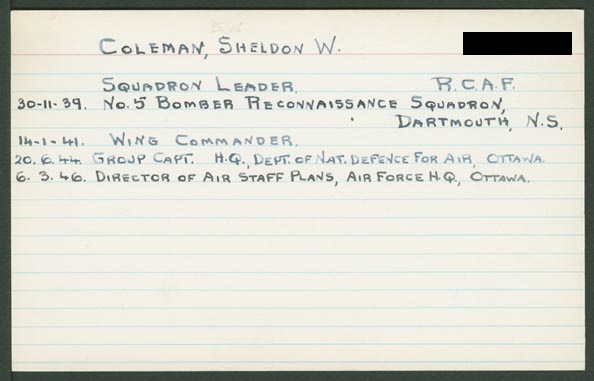 COLEMAN, SHELDON W.
SQUADRON LEADER. R.C.A.F.
30-11-39. NO. 5 BOMBER RECONNAISSANCE SQUADRON,
DARTMOUTH, N.S.
14-1-41. WING COMMANDER.
20.6.44. GROUP CAPT. H.Q., DEPT. OF NAT. DEFENCE FOR AIR, OTTAWA.
6.3.46. DIRECTOR OF AIR STAFF PLANS, AIR FORCE H.Q., OTTAWA.